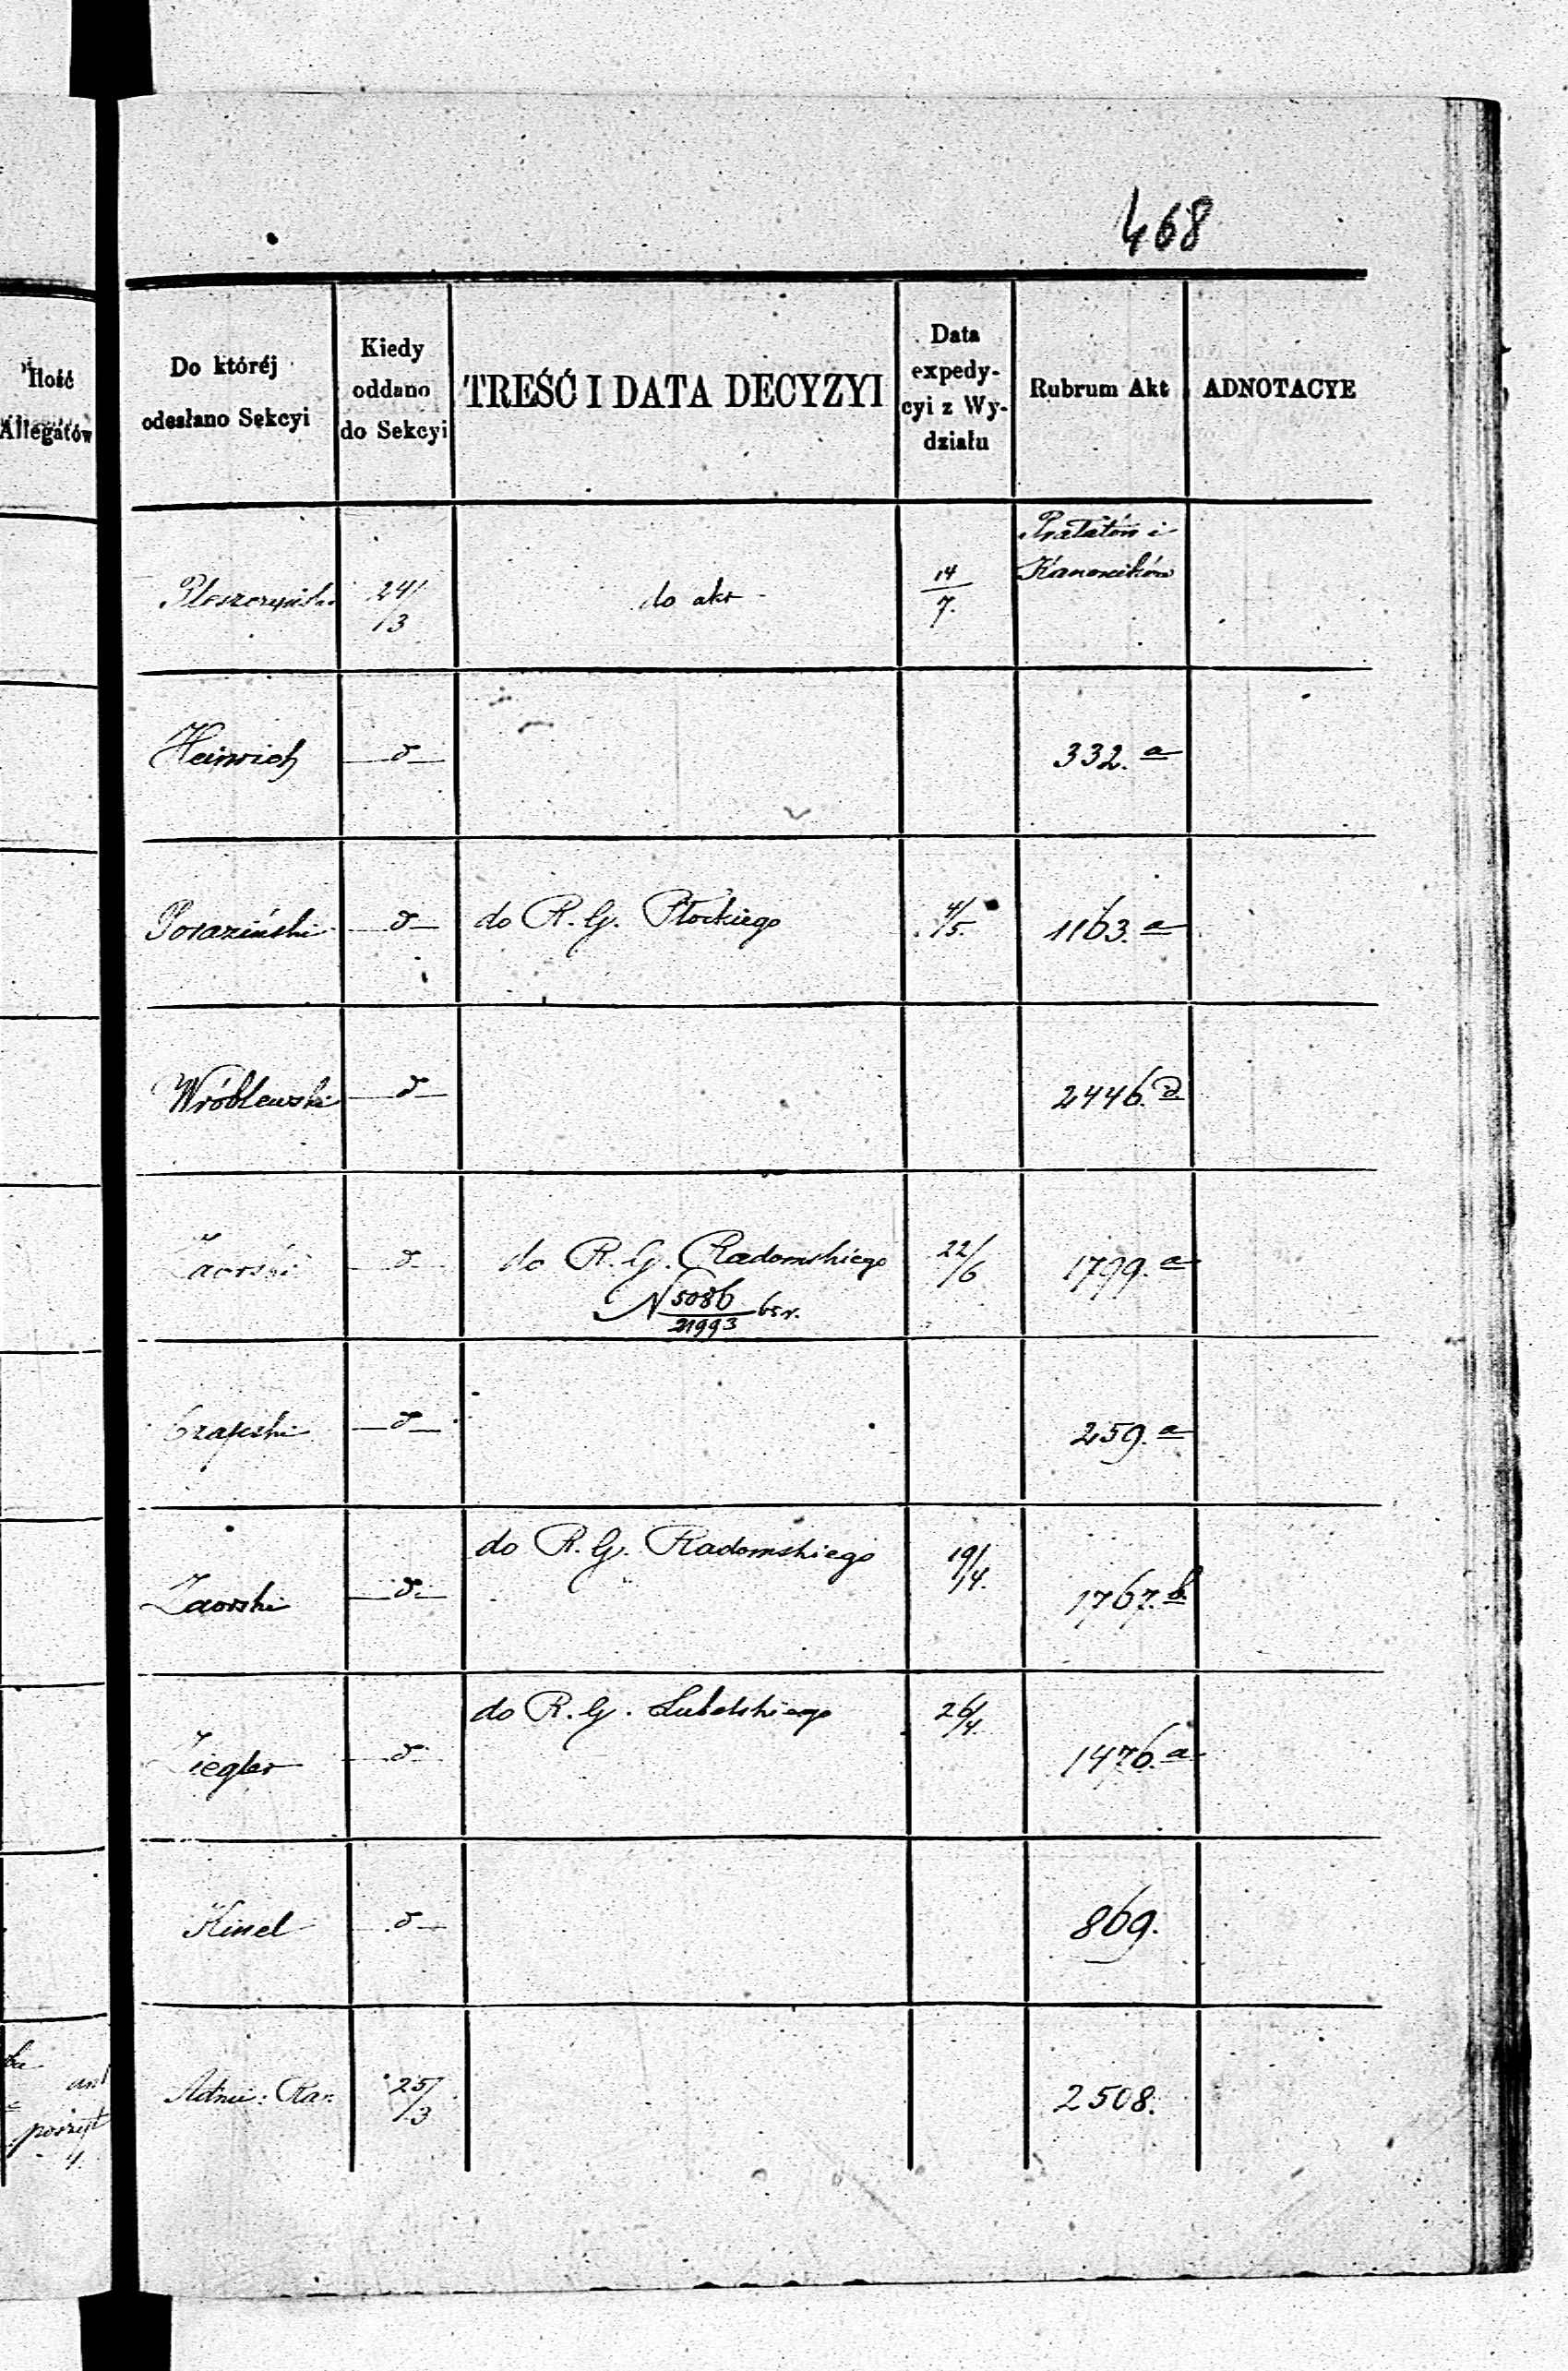 468
Ilość
Allegatów
Do któréj
odesłano Sekcyi
Kiedy
oddano
do Sekcyi
TREŚĆ I DATA DECYZYI
Data
expedy-
cyi z Wy-
działu
Rubrum Akt
ADNOTACYE
24/3
do akt
14/7.
Prałatów i
Kanoników
Heinrich
d
332. a
d
do R. G. Płockiego
4/5.
1163. a
Wróblewski
d
2446. d
Zaorski
d
do R. G. Radomskiego
22/6
1799. a
N 5086/21993
Czapski
d
259. a
Zaorski
d
do R. G. Radomskiego
19/4.
1767. b
Ziegler
d
do R. G. Lubelskiego
26/4.
1476. a
Kinel
d
869.
25/3
2508.